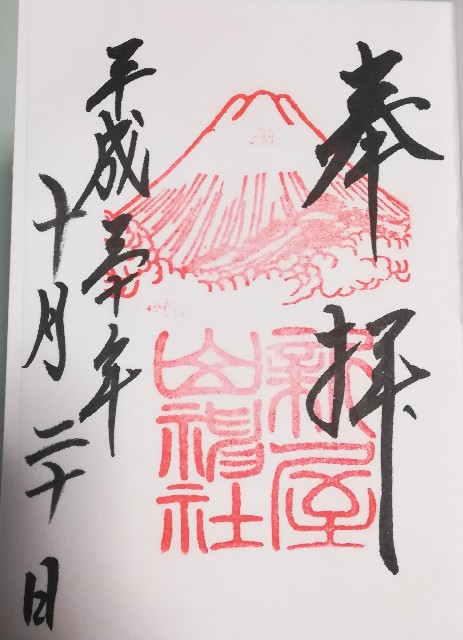 奉拝
新屋
山神社
平成三十年
十月二十日